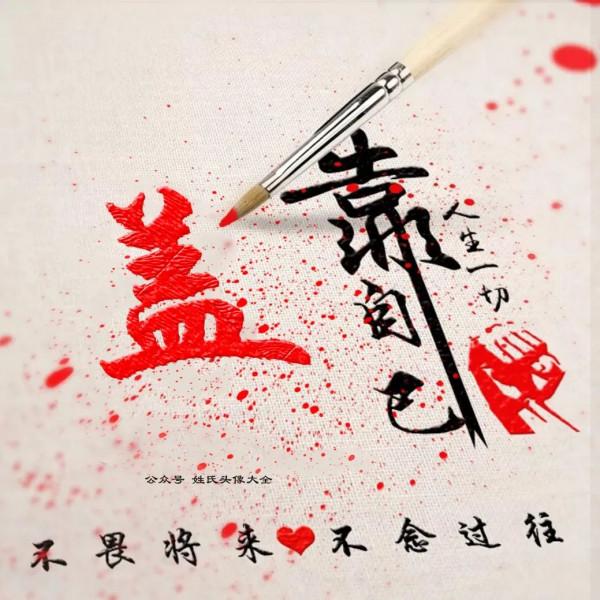 盖
靠自己
人生一切
公众号 姓氏头像大全
不畏将来 不念过往